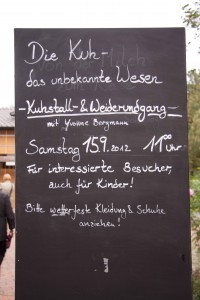 Die Kuh-
das unbekannte Wesen
-Kuhstall- & Weiderundgang-
mit Yvonne Bergmann
Samstag 15.9.2012 11⁰⁰ Uhr
Für interessierte Besucher,
auch für Kinder!
Bitte wetterfeste Kleidung & Schuhe
anziehen!